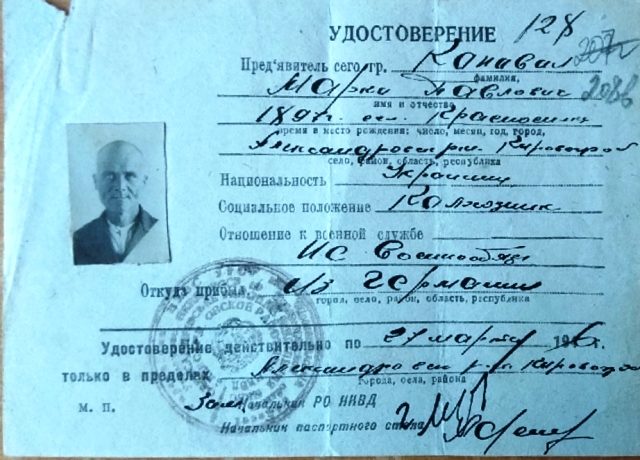 УДОСТОВЕРЕНИЕ 128
207
2086
Пред'явитель сего гр. Канавал
фамилия,
Марко Павлович
имя и отчество
1897г. Красносілка
время и место рождения: число, месяц, год, город,
Александровск р-н. Кировоград
село, район, область, республика
Национальность Украинец
Социальное положение Колхозник
Отношение к военной службе
Не военнообяз
Откуда прибыл из Германии
город, село, район, область, республика
Удостоверение действительно по 27 марта 1946г.
только в пределах Александровск р-н Кировоград
города, села, района
м. п. Зам Начальник РО НКВД
Начальник паспортного стола